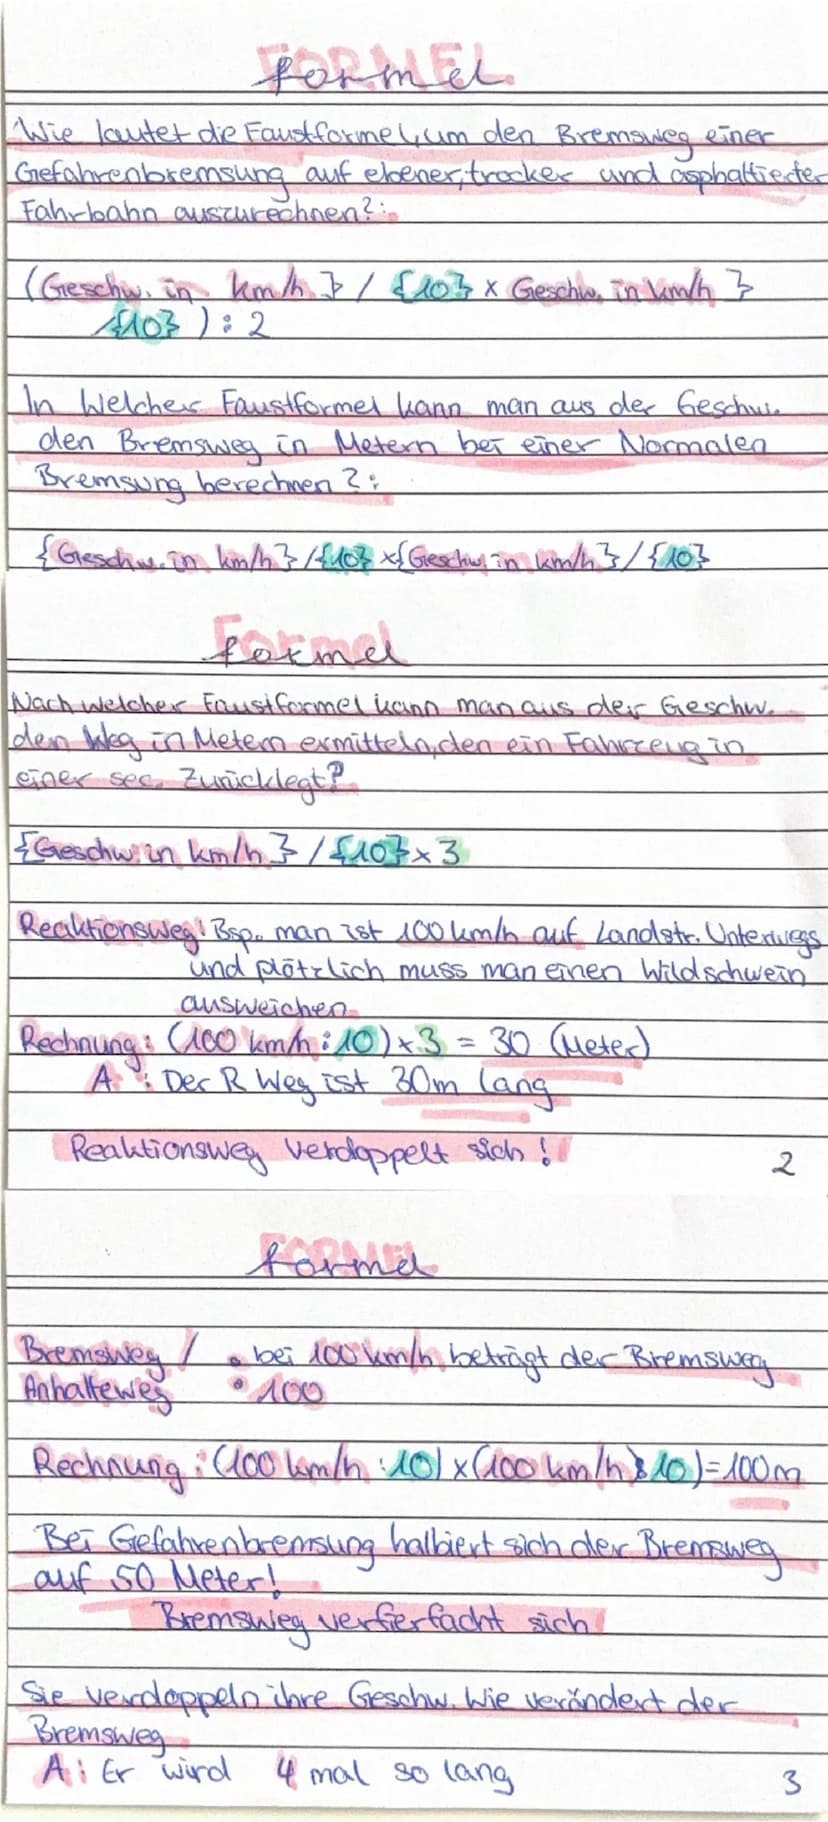 FORMEL
formel
Wie lautet die Faustformel, um den Bremsweg einer
Gefahrenbremsung auf ebener, trocker und asphaltierter
Fahrbahn auszurechnen?:
(Geschw. in km/h } / {10} x Geschw. in km/h }
/{10} ) : 2
In Welcher Faustformel kann man aus der Geschwi.
den Bremsweg in Metern bei einer Normalen
Bremsung berechnen?:
{Geschw. in km/h} / {10} x {Geschw. in km/h} / {10}
Formel
formel
Nach welcher Faustformel kann man aus der Geschw.
den Weg in Metern ermitteln, den ein Fahrzeug in
einer sec. Zurücklegt?
{Geschw. in km/h } / {10} x 3
Reaktionsweg: Bsp. man ist 100 km/h auf Landstr. Unterwegs
und plötzlich muss man einen Wildschwein
ausweichen.
Rechnung: (100 km/h : 10) x 3 = 30 (Meter)
A : Der R Weg ist 30m lang
Reaktionsweg verdoppelt sich !
2
FORMEL
formel
Bremsweg / : bei 100 km/h beträgt der Bremsweg
Anhalteweg 100
Rechnung : (100 km/h : 10) x (100 km/h : 10) = 100m
Bei Gefahrenbremsung halbiert sich der Bremsweg
auf 50 Meter!
Bremsweg verfierfacht sich
Sie verdoppeln ihre Geschw. Wie verändert der
Bremsweg
A : Er wird 4 mal so lang
3